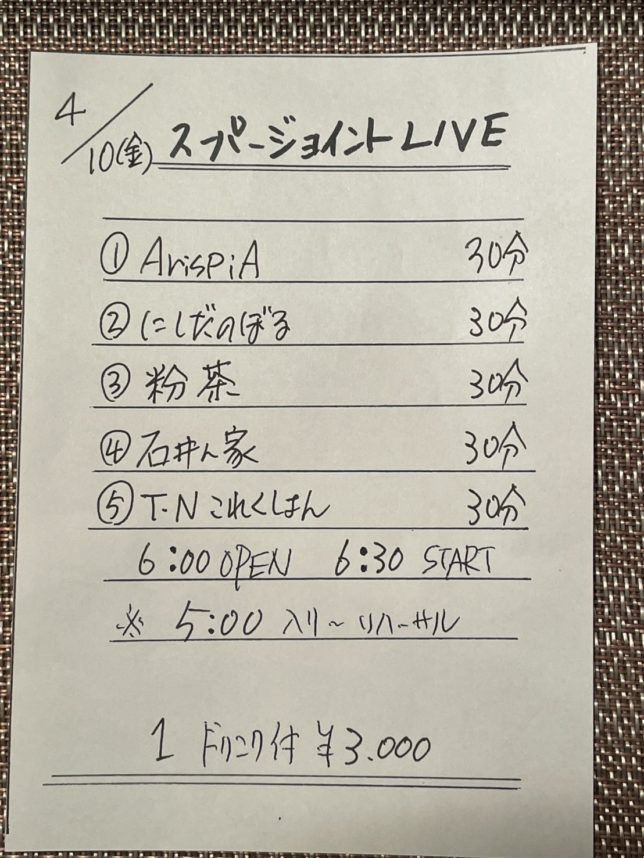 4/10(金) スーパージョイントLIVE
① ArispiA 30分
② にしだのぼる 30分
③ 粉茶 30分
④ 石井ん家 30分
⑤ T.N これくしょん 30分
6:00 OPEN 6:30 START
※ 5:00 入り～リハーサル
1 ドリンク付 ¥3.000